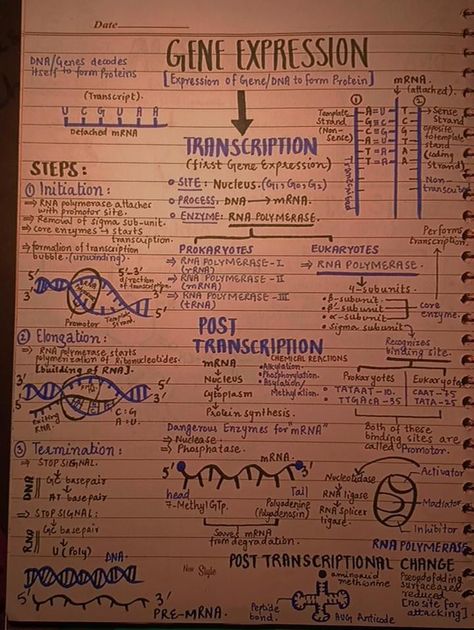 Date
GENE EXPRESSION
DNA/Genes decodes
itself to form Proteins
[Expression of Gene/DNA to form Protein]
mRNA.
(attached).
(Transcript).
U C G U A A
Detached mRNA
① ②
Template
Strand
(Non-
Sense)
Transcribed
Sense
Strand
opposite
to template
strand
(coding
strand)
Non-
A=U T
G≡C G
T=A A
TRANSCRIPTION
(first Gene Expression)
• SITE: Nucleus. (G₁, G₀, G₂)
• PROCESS: DNA → mRNA.
• ENZYME: RNA POLYMERASE.
STEPS:
① Initiation:
⇒ RNA polymerase attaches
with promotor site.
⇒ Removal of sigma sub-unit.
⇒ core enzymes → starts
transcription.
⇒ formation of transcription
bubble. (unwinding)
5' 3'
5'-3'
direction
of transcription.
3' 5'
Promotor
Template Strand.
PROKARYOTES
⇒ RNA POLYMERASE-I
(rRNA)
⇒ RNA POLYMERASE-II
(mRNA)
⇒ RNA POLYMERASE-III
(tRNA)
EUKARYOTES
⇒ RNA POLYMERASE.
4-subunits.
• β-subunit.
• β'-subunit
• α-subunit
• sigma subunit
core
enzyme.
Performs
transcription.
Recognises
binding site.
Prokaryotes
• TATAAT-10.
• TTGACA-35
Eukaryotes
CAAT-75
TATA-25
Both of these
binding sites are
called Promotor.
② Elongation:
⇒ RNA polymerase starts
polymerization of Ribonucleotides.
[building of RNA].
5' 3'
3' 5'
C:G
A:U
exiting
RNA.
POST
TRANSCRIPTION
mRNA
Nucleus
Cytoplasm
Protein synthesis.
CHEMICAL REACTIONS
• Alkylation.
• Phosphorylation.
• Asylation/
Methylation.
Dangerous Enzymes for "mRNA"
⇒ Nuclease.
⇒ Phosphatase.
mRNA.
5' 3'
head
7-Methyl GTP.
Tail
Polyadening
(Polyadenosin)
Saves mRNA
from degradation.
③ Termination:
⇒ STOP SIGNAL:
DNA
GC basepair
AT basepair
⇒ STOP SIGNAL:
RNA
GC basepair
U (Poly)
DNA.
5' 3'
PRE-MRNA.
Nucleotidase
RNA ligase
RNA splicer
ligase.
Activator
Mediator
Inhibitor
RNA POLYMERASE
New Style
POST TRANSCRIPTIONAL CHANGE
aminoacid
methionine
Peptide
bond.
AUG Anticode
surface area
reduced
[No site for
attacking]